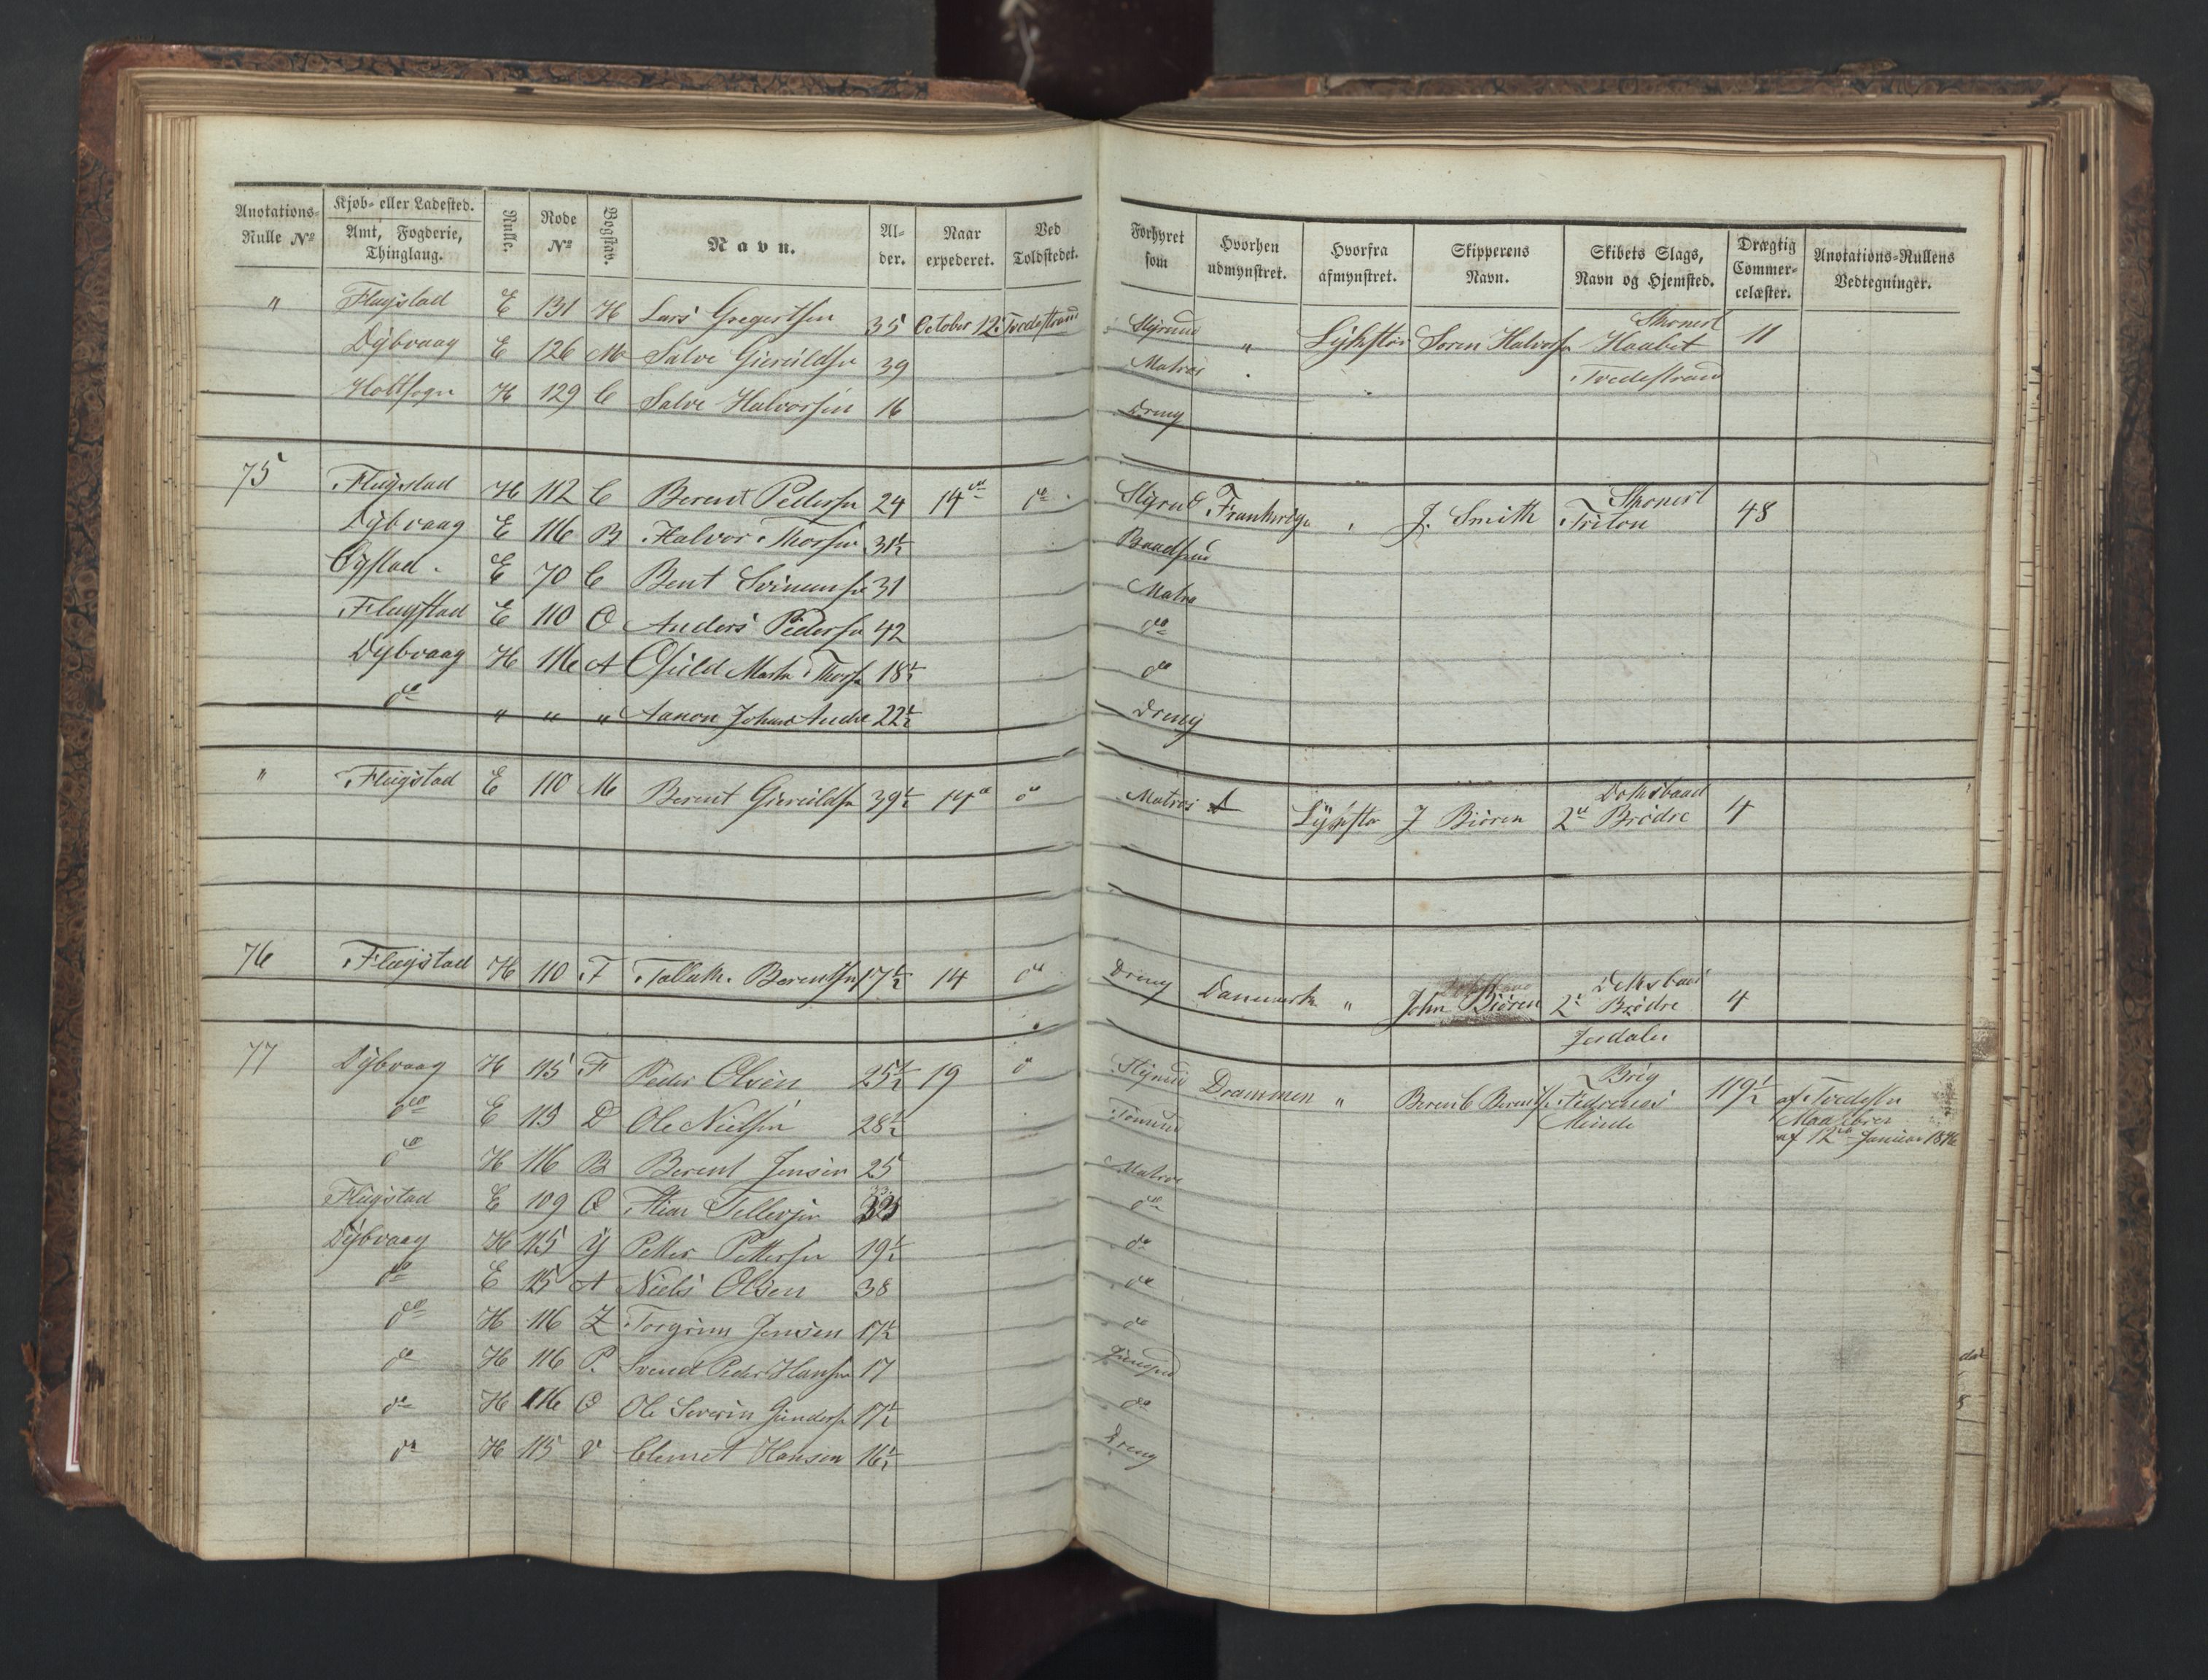 Anotations-Rulle No | Kjøb- eller Ladested. Amt, Fogderie, Thinglaug. | Rulle. | Rode No | Bogstav. | Navn. | Alder. | Naar expederet. | Ved Toldstedet. | Forhyret som | Hvorhen udmynstret. | Hvorfra afmynstret. | Skipperens Navn. | Skibets Slags, Navn og Hjemsted. | Drægtig Commercelæster. | Anotations-Rullens Vedtegninger.
" | Flagstad | E | 131 | H | Lars Gregertsen | 35 | October 12 | Tvedestrand | Styrmd | " | | Søren Halvorsen | Skonert Haabet Tvedestrand | 11
Dybvaag | E | 126 | M | Salve | 39 | Matros
Holtsogn | H | 129 | C | Salve Halvorsen | 16 | Dreng
75 | Flagstad | H | 112 | C | Berent Pedersen | 24 | 14de | do | Styrmd | Frankrige | J. Smith | Skonert Triton | 48
Dybvaag | E | 116 | B | Halvor Thorsen | 31½ | Baadsmd
E | 70 | C | Bent | 31 | Matro
Flagstad | E | 110 | O | Anders Pedersen | 42 | do
Dybvaag | H | 116 | A | Martin Thors | 18½ | do
do | " | " | " | Aanon Johan | 22½ | Dreng
" | Flagstad | E | 110 | M | Berent | 39½ | 14de | do | Matros | J Biøren | Deksbaad 2de Brødre | 4
76 | Flagstad | H | 110 | F | Tallak Berentsen | 17½ | 14 | do | Dreng | Danmark | " | John Biøren | Deksbaad 2de Brødre | 4
77 | Dybvaag | H | 115 | F | Peder Olsen | 25½ | 19 | do | Styrmd | Drammen | " | Berent Berentsen | Brig Fædrenes Minde | 119½ | af Tvedestr Maalebrev af 12te Januar 1846
do | E | 113 | D | Ole Nielsen | 28½ | Tømmd
do | H | 116 | B | Berent Jensen | 25 | Matros
Flagstad | E | 109 | O | Tellefsen | do
Dybvaag | H | 115 | Y | Petter Pettersen | 19½ | do
do | E | 115 | A | Niels Olsen | 38 | do
do | H | 116 | Z | Torgrim Jensen | 17½ | do
do | H | 116 | P. | Svend Peder Hansen | 17
do | H | 116 | O | Ole Severin Gundersen | 17½ | do
do | H | 115 | V | Clemet Hansen | 16½ | Dreng